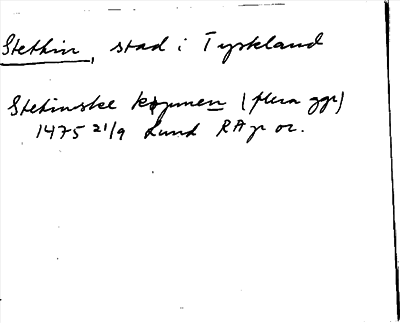 Stettin, stad i Tyskland
Stetinske køpmen (flera ggr)
1475 21/9 Lund RAp or.